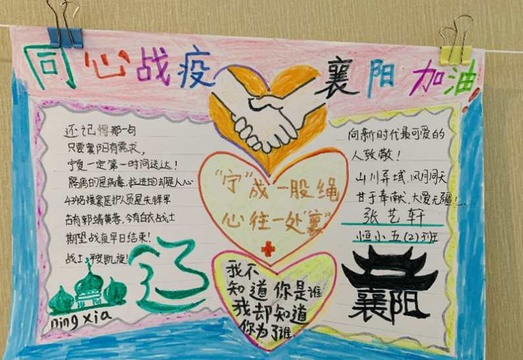 同心战疫
襄阳加油
还记得那一句
只要襄阳有需求，
宁夏一定第一时间送达！
隔病的是病毒，拉进的却是人心
古有郭靖黄蓉，今有白衣战士
期望战疫早日结束！
战士平安凯旋！
ningxia
"宁"成一股绳
心往一处"襄"
我不
知道你是谁
我却知道
你为了谁
向新时代最可爱的
人致敬！
山川异域，风月同天
甘于奉献，大爱无疆！
张艺轩
恒小五(2)班
襄阳